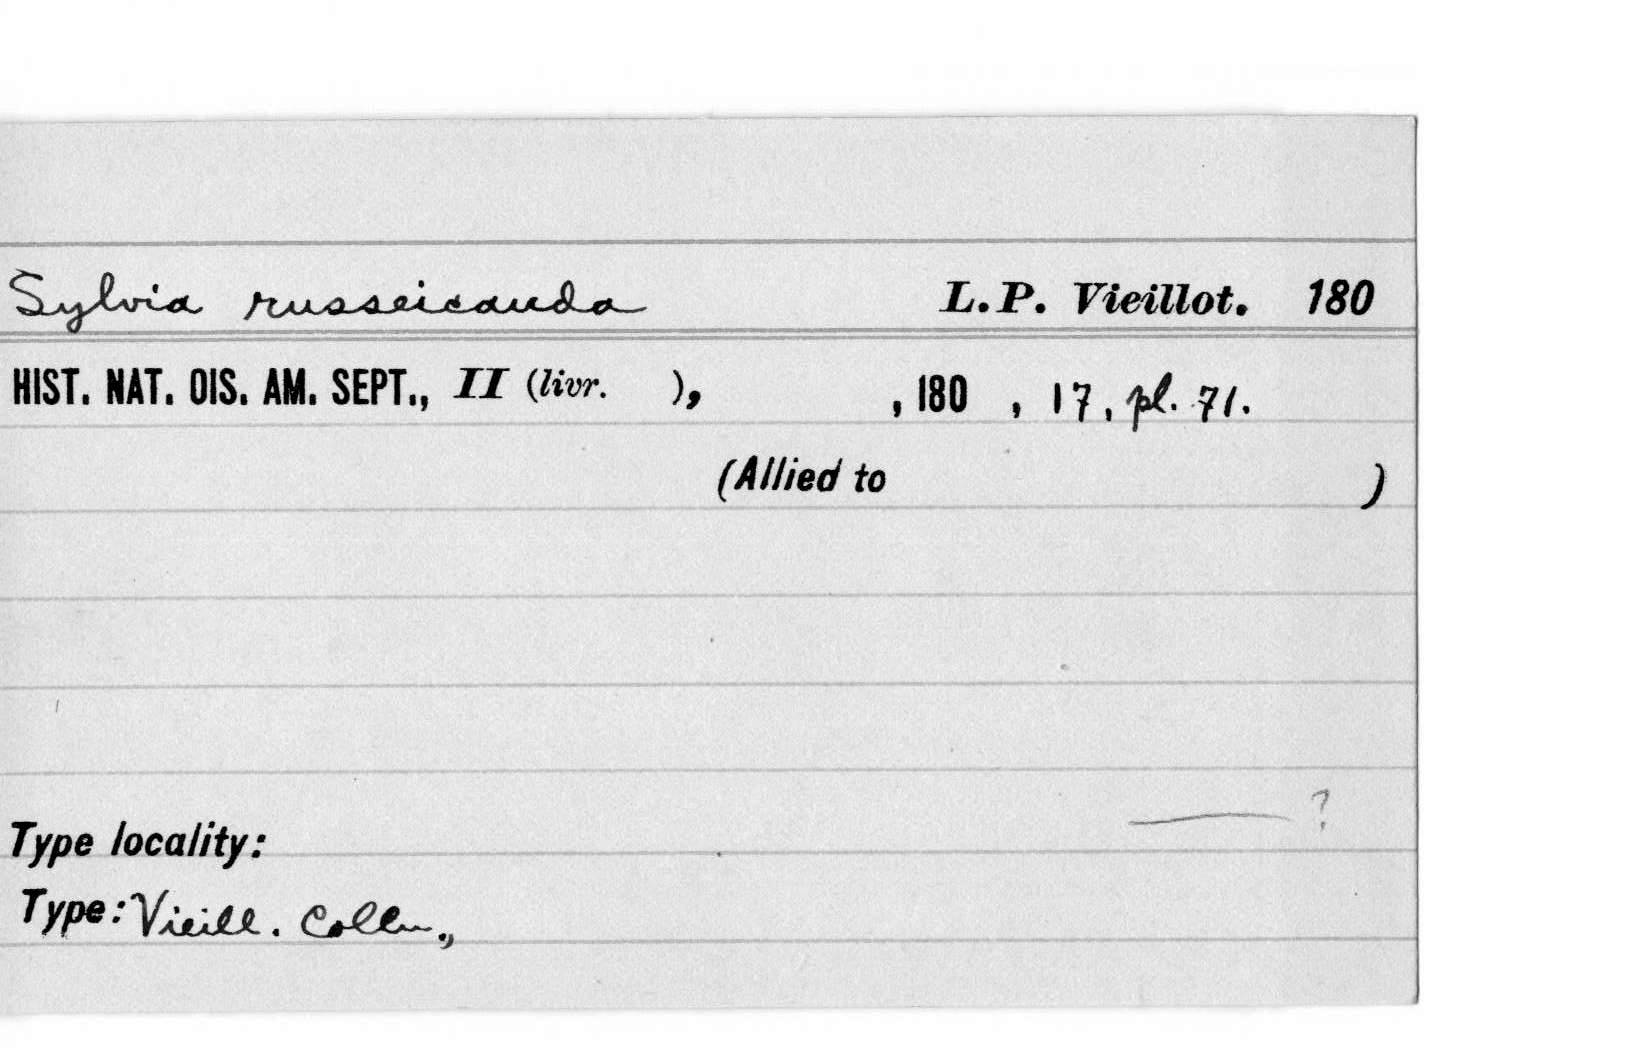 Sylvia russeicauda L.P. Vieillot. 180
HIST. NAT. OIS. AM. SEPT., II (livr. ), , 180 , 17, pl. 71.
(Allied to )
?
Type locality:
Type: Vieill. Colln.,